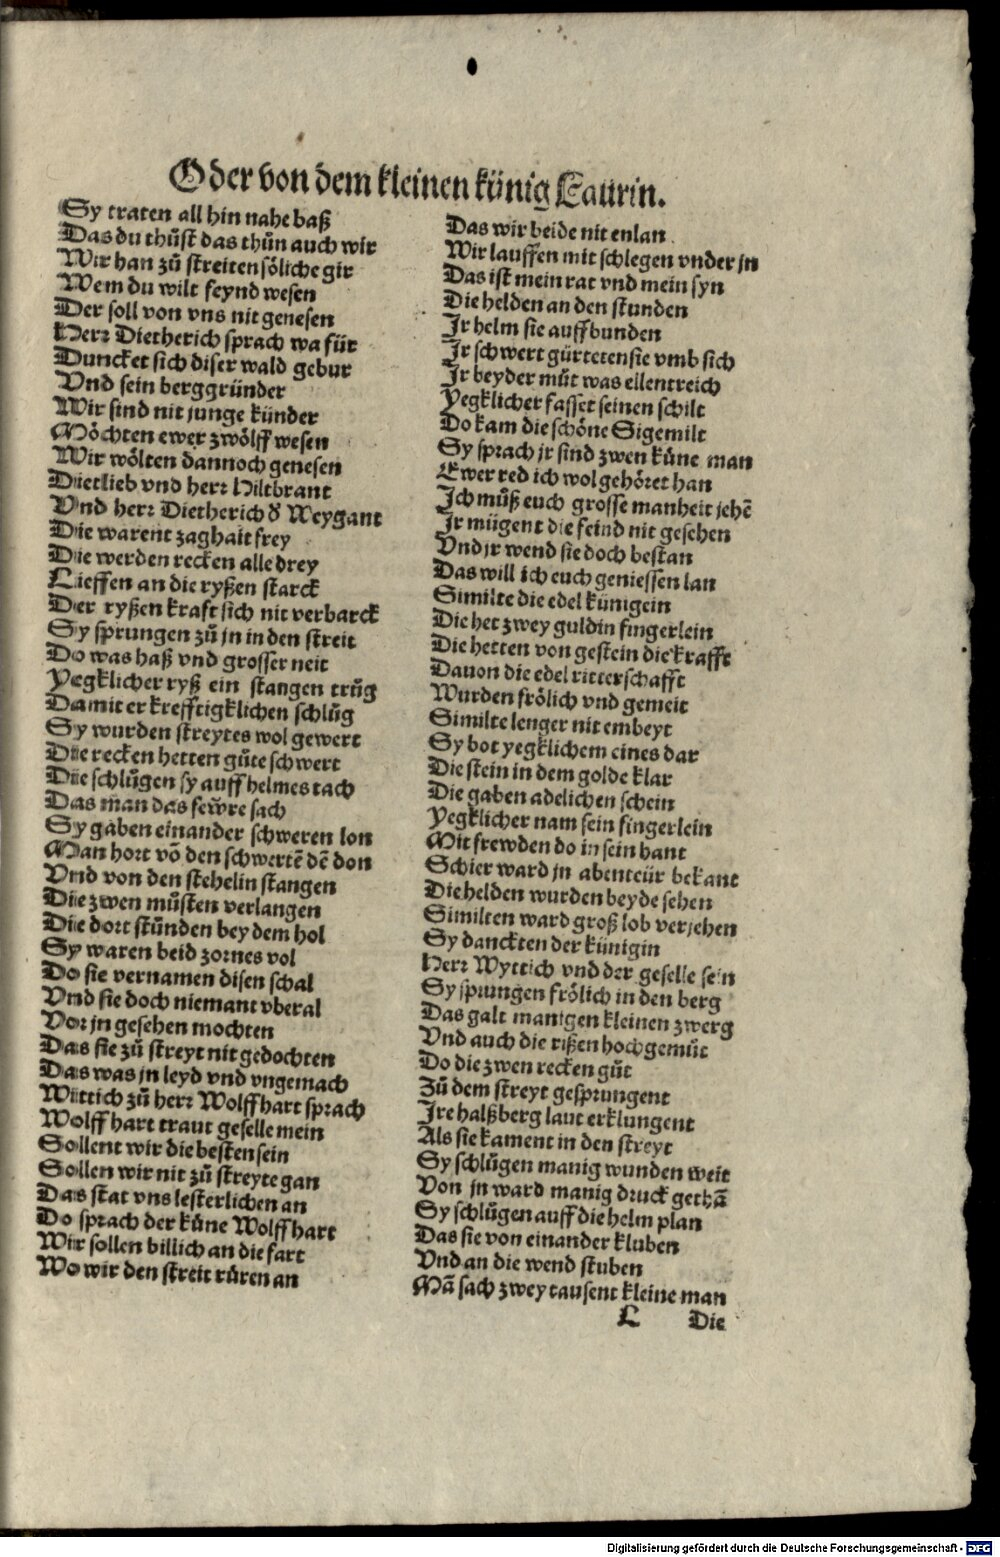 Oder von dem kleinen künig Laurin.
Sy traten all hin nahe baß
Das du thůst das thůn auch wir
Wir han zů streiten söliche gir
Wem du wilt feynd wesen
Der soll von vns nit genesen
Herr Dietherich sprach wa für
Duncket sich diser wald gebur
Vnd sein berggründer
Wir sind nit junge künder
Möchten ewer zwölff wesen
Wir wölten dannoch genesen
Dietlieb vnd herr Hiltbrant
Vnd herr Dietherich d' Weygant
Die warent zaghait frey
Die werden recken alle drey
Lieffen an die ryßen starck
Der ryßen kraft sich nit verbarck
Sy sprungen zů jn in den streit
Do was haß vnd grosser neit
Yegklicher ryß ein stangen trůg
Damit er krefftigklichen schlůg
Sy wurden streytes wol gewert
Die recken hetten gůte schwert
Die schlůgen sy auff helmes tach
Das man das fewre sach
Sy gaben einander schweren lon
Man hort võ den schwertẽ dẽ don
Vnd von den stehelin stangen
Die zwen můsten verlangen
Die dort stůnden bey dem hol
Sy waren beid zornes vol
Do sie vernamen disen schal
Vnd sie doch niemant vberal
Vor jn gesehen mochten
Das sie zů streyt nit gedochten
Das was jn leyd vnd vngemach
Wittich zů herr Wolffhart sprach
Wolffhart traut geselle mein
Sollent wir die besten sein
Sollen wir nit zů streyte gan
Das stat vns lesterlichen an
Do sprach der kůne Wolffhart
Wir sollen billich an die fart
Wo wir den streit růren an
Das wir beide nit enlan
Wir lauffen mit schlegen vnder jn
Das ist mein rat vnd mein syn
Die helden an den stunden
Jr helm sie auffbunden
Jr schwert gürteten sie vmb sich
Jr beyder můt was ellentreich
Yegklicher fasset seinen schilt
Do kam die schöne Sigemilt
Sy sprach jr sind zwen kůne man
Ewer red ich wol gehöret han
Jch můß euch grosse manheit jehẽ
Jr mügent die feind nit gesehen
Vnd jr wend sie doch bestan
Das will ich euch geniessen lan
Similte die edel künigein
Die het zwey guldin fingerlein
Die hetten von gestein die krafft
Dauon die edel ritterschafft
Wurden frölich vnd gemeit
Similte lenger nit embeyt
Sy bot yegklichem eines dar
Die stein in dem golde klar
Die gaben adelichen schein
Yegklicher nam sein fingerlein
Mit frewden do in sein hant
Schier ward jn abenteür bekant
Die helden wurden beyde sehen
Similten ward groß lob verjehen
Sy danckten der künigin
Herr Wyttich vnd der geselle sein
Sy sprungen frölich in den berg
Das galt manigen kleinen zwerg
Vnd auch die rißen hochgemůt
Do die zwen recken gůt
Zů dem streyt gesprungent
Jre halßberg laut erklungent
Als sie kament in den streyt
Sy schlůgen manig wunden weit
Von jn ward manig druck gethã
Sy schlůgen auff die helm plan
Das sie von einander kluben
Vnd an die wend stuben
Mã sach zwey tausent kleine man
L Die
Digitalisierung gefördert durch die Deutsche Forschungsgemeinschaft - DFG